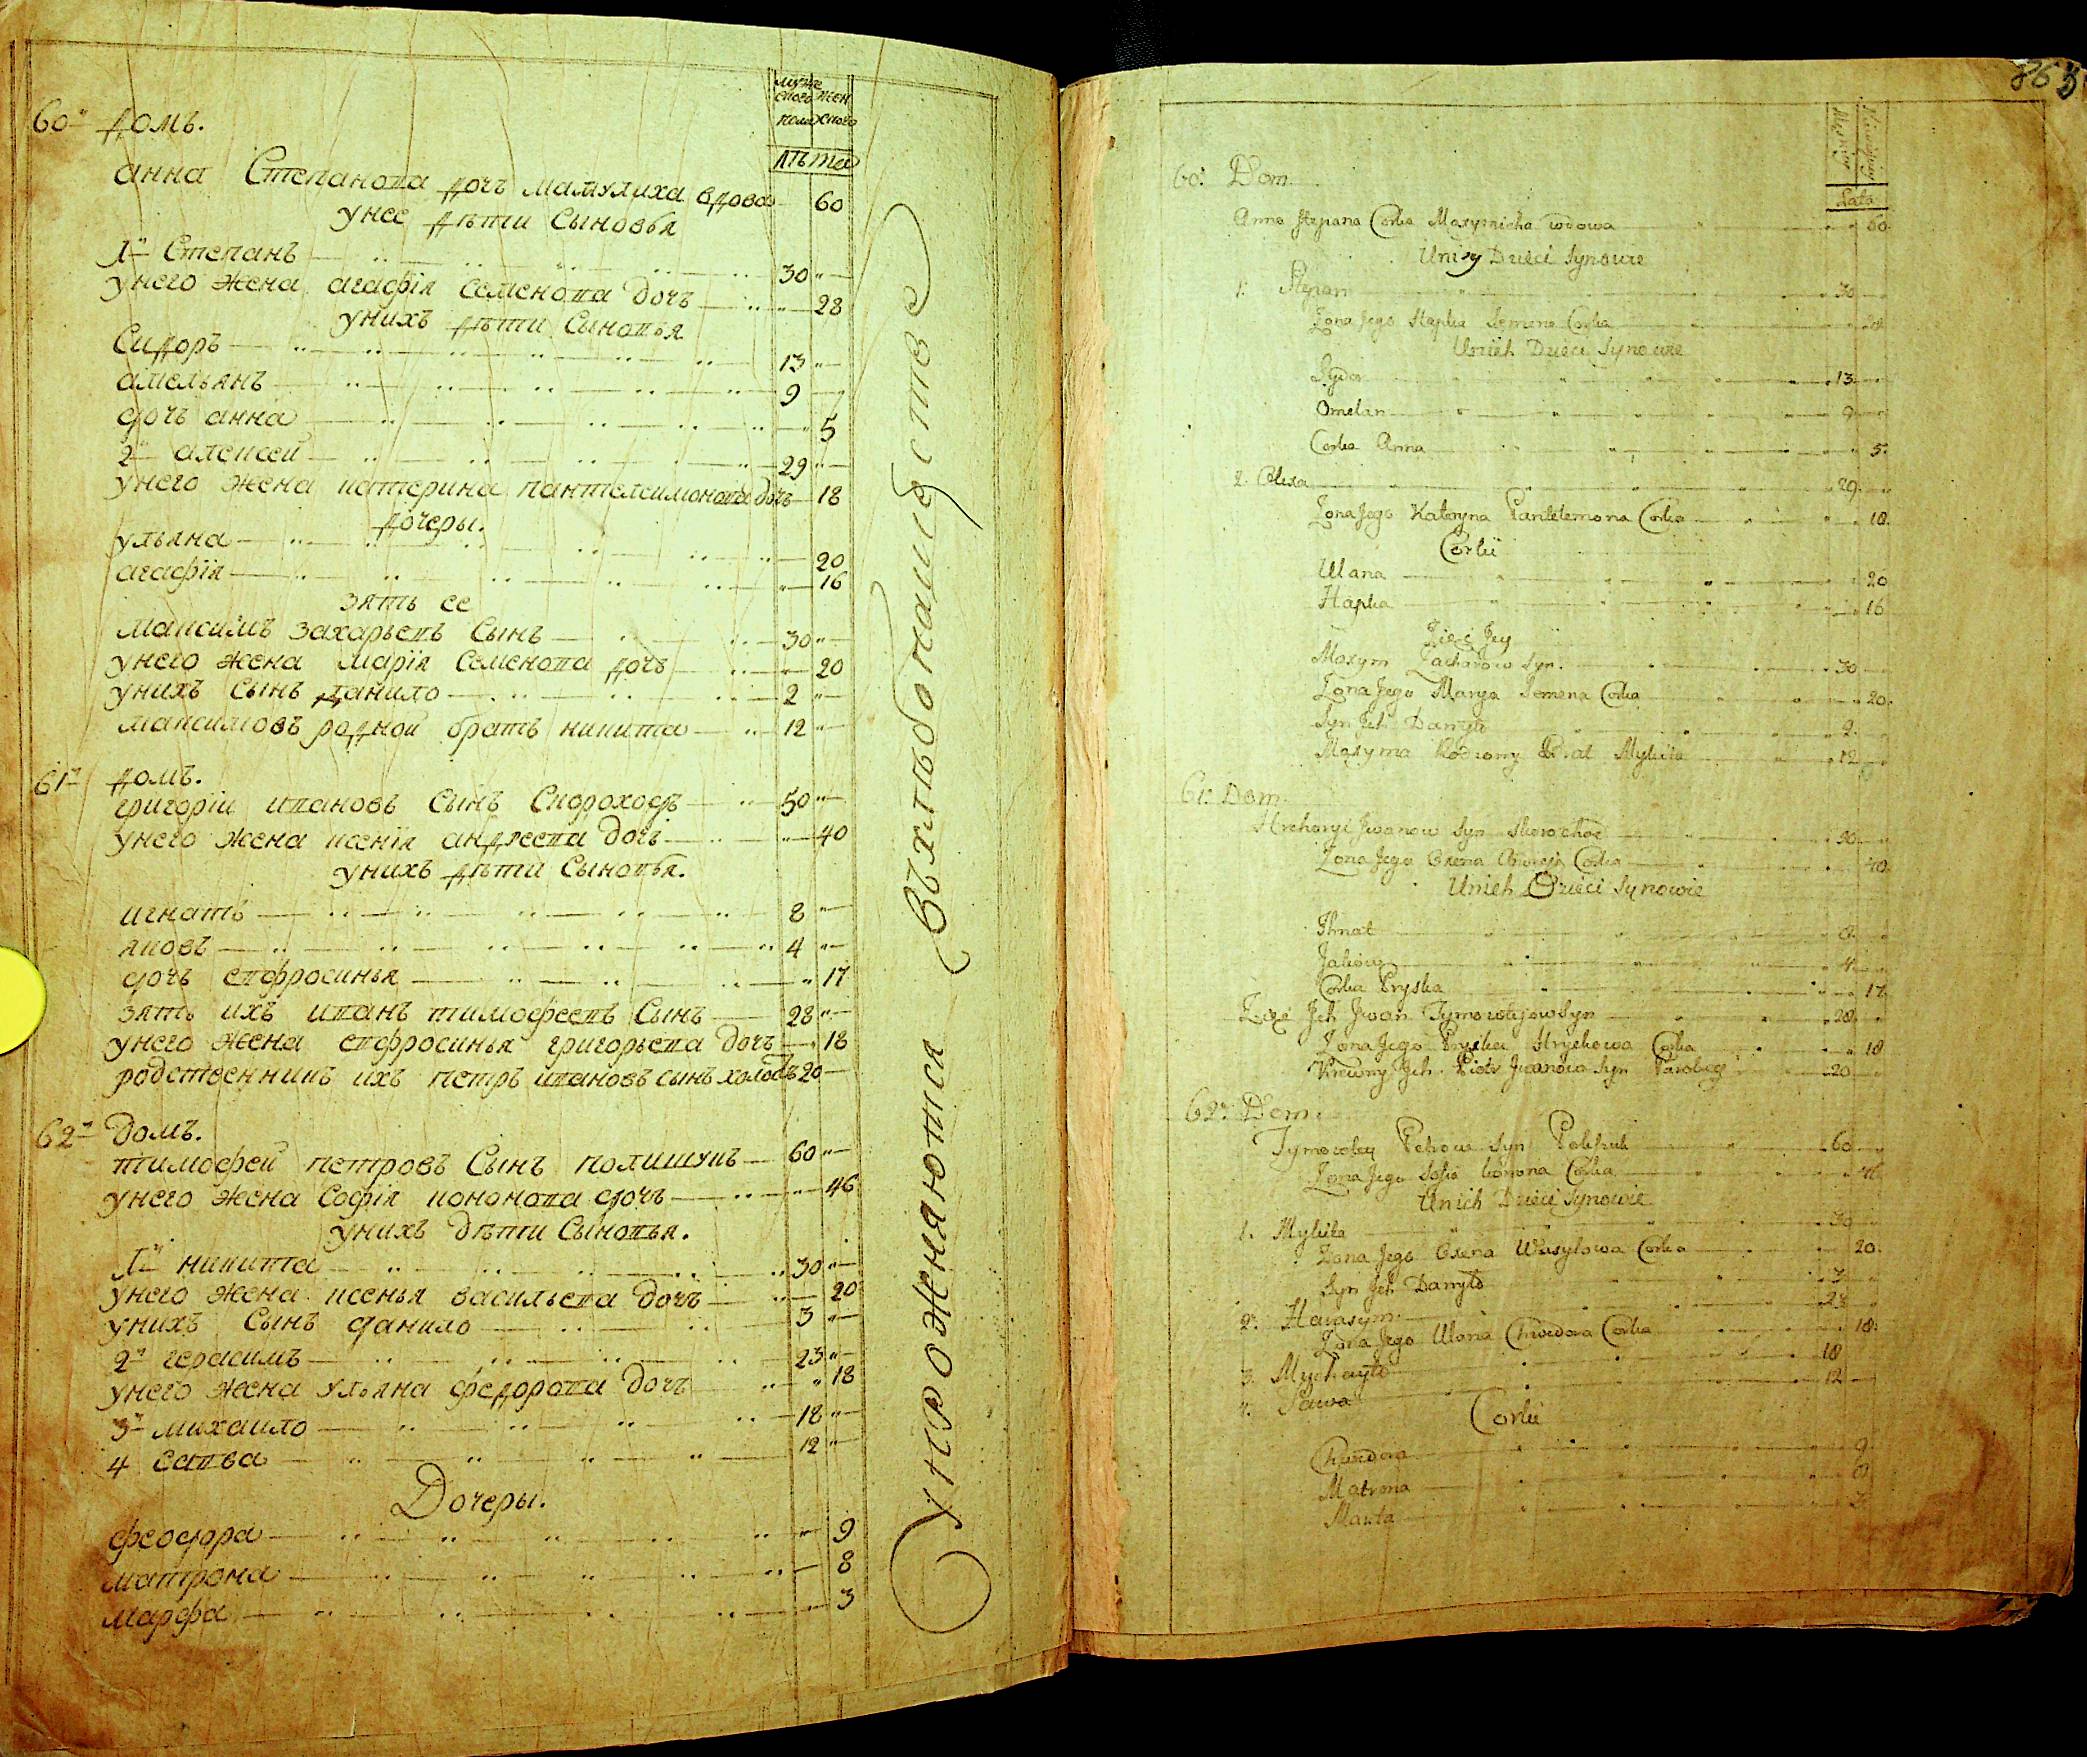 муже
ского жен
пола ского
лѣта
60й домъ.
анна Степанова дочъ мамулиха вдова 60
унее дѣти Сыновья
1й Степанъ 30
унего жена агафія семенова дочъ 28
унихъ дѣти Сыновья
Сидоръ 13
амельянъ 9
дочъ анна 5
2й алексей 29
унего жена катерина пантелеимонова дочъ 18
дочеры.
ульяна 20
агафія 16
зять ее
максимъ захарьевъ Сынъ 30
унего жена марія семенова дочъ 20
унихъ сынъ данило 2
максимовъ родной братъ никита 12
61й домъ.
григоріи ивановъ Сынъ Скороходъ 50
унего жена ксенія андреева дочъ 40
унихъ дѣти Сыновья.
игнатъ 8
яковъ 4
дочъ евфросинья 17
зять ихъ иванъ тимофеевъ Сынъ 28
унего жена евфросинья григорьева дочъ 18
родственникъ ихъ петръ ивановъ сынъ холостъ 20
62й домъ.
тимофей петровъ Сынъ полишукъ 60
унего жена Софія кононова дочъ 46
унихъ дѣти Сыновья.
1й никита 30
унего жена ксенья васильева дочъ 20
унихъ Сынъ данило 3
2й герасимъ 23
унего жена ульяна федорова дочъ 18
3й михаило 18
4 савва 12
Дочеры.
феодора 9
матрона 8
марфа 3
Lata
60. Dom
Anna Stepana Corka wdowa 60
Uniey Dzieci Synowie
1. Stepan 30
Zona Jego Hapka Semena Corka 28
Unich Dzieci Synowie
Sydor 13
Omelan 9
Corka Anna 5
2. Olexa 29
Zona Jego Kateryna Pantelemona Corka 18
Corki
Ulana 20
Hapka 16
Zięć Jey
Maxym Zacharow Syn 30
Zona Jego Marya Semena Corka 20
Syn Jch Danyło 2
Maxyma Rodzony Brat Mykita 12
61. Dom
Hrehoryi Jwanow Syn Skorochod 50
Zona Jego Oxena Andreja Corka 40
Unich Dzieci Synowie
Jhnat 8
Jakow 4
Corka Pryska 17
Zięć Jch Jwan Tymoteyow Syn 28
Zona Jego Pryska Hryckowa Corka 18
Krewny Jch Piotr Jwanow Syn Parobeg 20
62. Dom
Petrow Syn 60
Zona Jego Sofia Conona Corka 46
Unich Dzieci Synowie
1. Mykita 30
Zona Jego Oxena Wasylowa Corka 20
Syn Jch Danyło 3
2. Harasym 23
Zona Jego Ulana Chwedora Corka 18
3. Mychayło 18
4. Sawa 12
Corki
Chwedora 9
Matrona 8
Marta 3